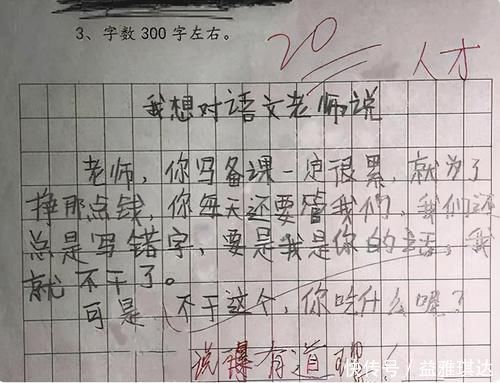 3、字数 300 字左右。
20
人才
我想对语文老师说
老师，你写备课一定很累，就为了
挣那点钱，你每天还要管我们，我们还
总是写错字，要是我是你的话，我
就不干了。
可是不干这个，你吃什么？
说得有道理！
快传号／益雅琪达